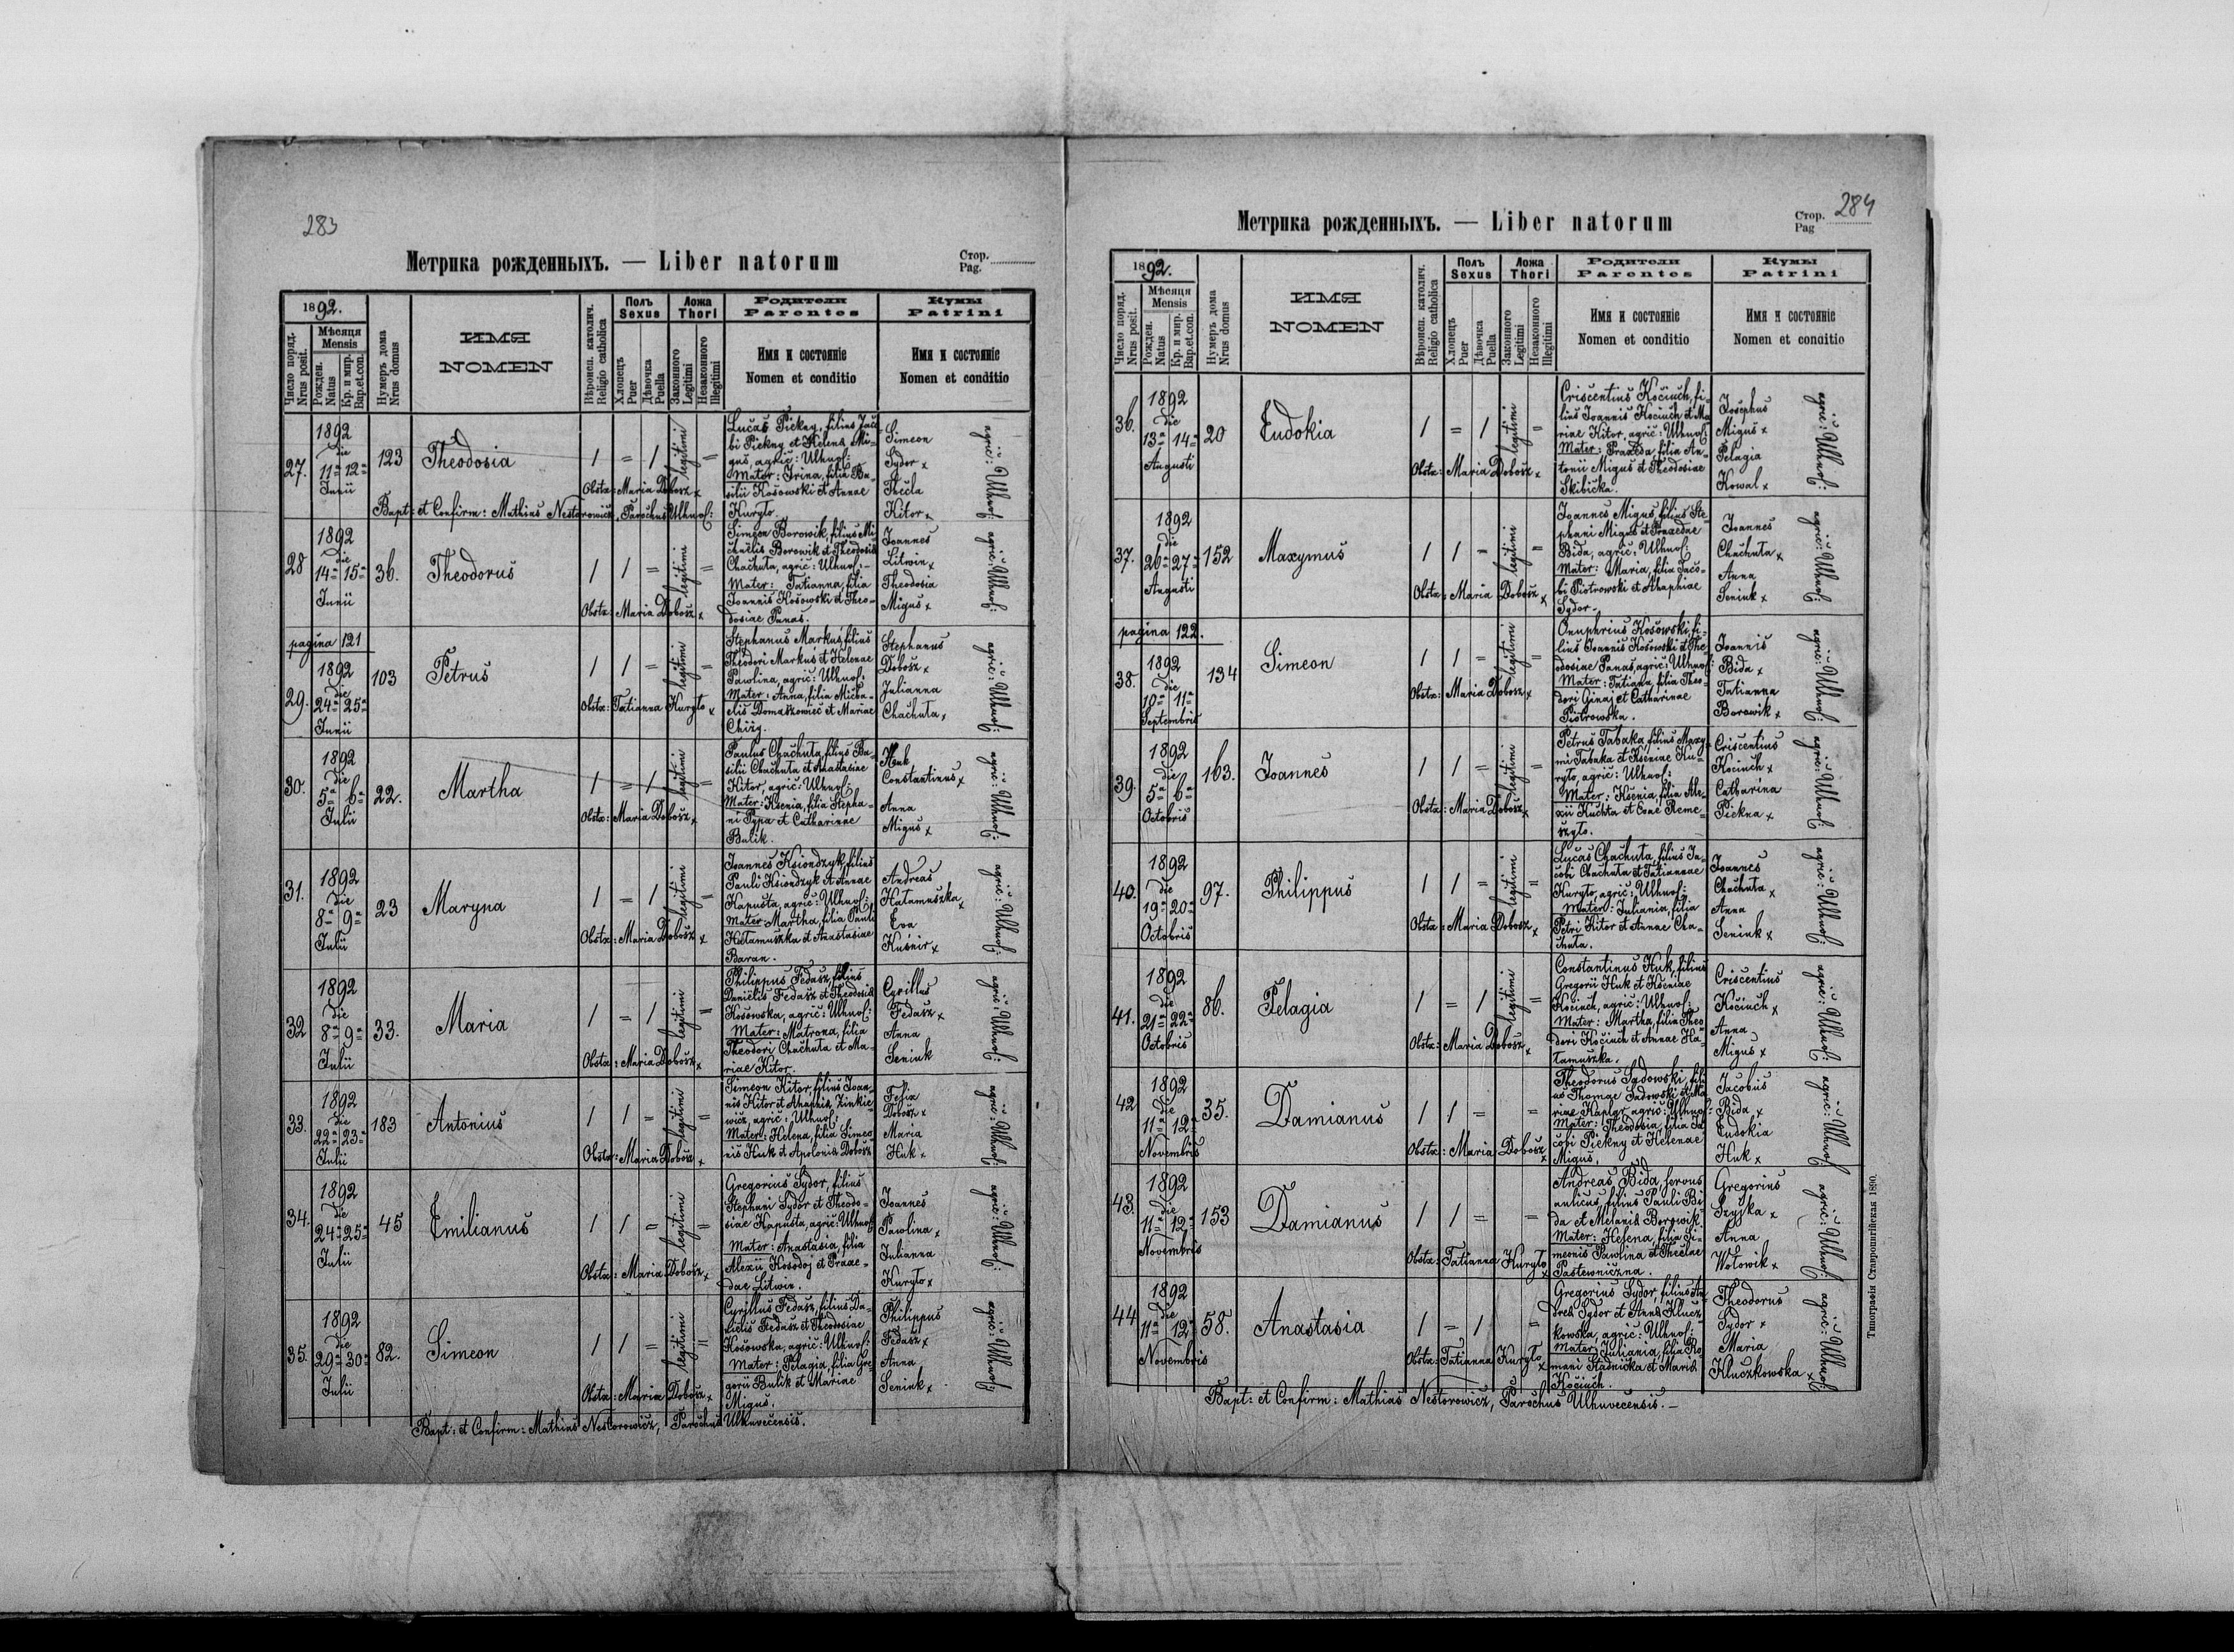 283
Метрика рожденныхъ. — Liber natorum
Стор.
Pag.
1892.
Число поряд.
Nrus posit.
Мѣсяця
Mensis
Рожден.
Natus
Кр. и мир.
Bap.et.con.
Нумеръ дома
Nrus domus
ИМЯ
NOMEN
Вѣроисп. католич.
Religio catholica
Полъ
Sexus
Хлопецъ
Puer
Дѣвочка
Puella
Ложа
Thori
Законного
Legitimi
Незаконного
Illegitimi
Родители
Parentes
Имя и состояніе
Nomen et conditio
Кумы
Patrini
Имя и состояніе
Nomen et conditio
27.
1892
die
11ª 12ª
Junii
123
Theodosia
1 = 1 legitimi =
Obstx: Maria Dobosz x
Lucas Piekny, filius Jaco
bi Piekny et Helena Mi=
gus, agric: Ulhuof:
Mater: Irina, filia Ba=
silii Kosowski et Annae
Kuryło.
Simeon
Sydor x
Thecla
Kitor x
agric: Ulhuof:
Bapt: et Confirm: Mathias Nestorowicz, Parochus Ulhuof:
28
1892
die
14ª 15ª
Junii
36.
Theodorus
1 1 = legitimi =
Obstx: Maria Dobosz x
Simeon Borowik, filius Mi
chaelis Borowik et Theodosia
Chachuta, agric: Ulhuof:
Mater: Tatianna, filia
Joannis Kosowski et Theo=
dosiae Panas.
Joannes
Litwin x
Theodosia
Migus x
agric: Ulhuof:
pagina 121
29.
1892
die
24ª 25ª
Junii
103
Petrus
1 1 = legitimi =
Obstx: Tatianna Kuryło x
Stephanus Markus, filius
Theodori Markus et Helenae
Pawlina, agric: Ulhuof:
Mater: Anna, filia Micha=
elis Domaszowiec et Mariae
Chizy.
Stephanus
Dobosz x
Julianna
Chachuta x
agric: Ulhuof:
30.
1892
die
5ª 6ª
Julii
22.
Martha
1 = 1 legitimi =
Obstx: Maria Dobosz x
Paulus Chachuta, filius Ba=
silii Chachuta et Anastasiae
Kitor, agric: Ulhuof:
Mater: Ksenia, filia Stepha=
ni Pypa et Catharinae
Bulik.
Huk
Constantinus x
Anna
Migus x
agric: Ulhuof:
31.
1892
die
8ª 9ª
Julii
23
Maryna
1 = 1 legitimi =
Obstx: Maria Dobosz x
Joannes Ksiondzyk, filius
Pauli Ksiondzyk et Annae
Kapusta, agric: Ulhuof:
Mater: Martha, filia Pauli
Hatamuszka et Anastasiae
Baran.
Andreas
Hatamuszka x
Eva
Kusnir x
agric: Ulhuof:
32
1892
die
8ª 9ª
Julii
33.
Maria
1 = 1 legitimi =
Obstx: Maria Dobosz x
Philippus Fedasz, filius
Danielis Fedasz et Theodosia
Kosowska, agric: Ulhuof:
Mater: Matrona, filia
Theodori Chachuta et Ma=
riae Kitor.
Cyrillus
Fedasz x
Anna
Seniuk
agric: Ulhuof:
33.
1892
die
22ª 23ª
Julii
183
Antonius
1 1 = legitimi =
Obstx: Maria Dobosz x
Simeon Kitor, filius Joan=
nis Kitor et Ahaphia Zinkie=
wicz, agric: Ulhuof:
Mater: Helena, filia Simeo
nis Huk et Apolonia Dobosz
Felix
Dobosz x
Maria
Huk x
agric: Ulhuof:
34.
1892
die
24ª 25ª
Julii
45
Emilianus
1 1 = legitimi =
Obstx: Maria Dobosz x
Gregorius Sydor, filius
Stephani Sydor et Theodo=
siae Kapusta, agric: Ulhuof:
Mater: Anastasia, filia
Alexii Kosodoj et Praxe=
dae Litwin.
Joannes
Pawlina x
Julianna
Kuryło x
agric: Ulhuof:
35.
1892
die
29ª 30ª
Julii
82.
Simeon
1 1 = legitimi =
Obstx: Maria Dobosz x
Cyrillus Fedasz, filius Da=
nielis Fedasz et Theodosiae
Kosowska, agric: Ulhuof:
Mater: Pelagia, filia Gre=
gorii Bulik et Mariae
Migus.
Philippus
Fedasz x
Anna
Seniuk x
agric: Ulhuof:
Bapt: et Confirm: Mathias Nestorowicz, Parochus Ulhuvecensis.
Метрика рожденныхъ. — Liber natorum
Стор.
Pag
284
1892.
Число поряд.
Nrus posit.
Мѣсяця
Mensis
Рожден.
Natus
Кр. и мир.
Bap.et.con.
Нумеръ дома
Nrus domus
ИМЯ
NOMEN
Вѣроисп. католич.
Religio catholica
Полъ
Sexus
Хлопецъ
Puer
Дѣвочка
Puella
Ложа
Thori
Законного
Legitimi
Незаконного
Illegitimi
Родители
Parentes
Имя и состояніе
Nomen et conditio
Кумы
Patrini
Имя и состояніе
Nomen et conditio
36.
1892
die
13ª 14ª
Augusti
20
Eudokia
1 = 1 legitimi =
Obstx: Maria Dobosz x
Criscentius Kociuch, fi=
lius Joannis Kociuch et Ma
riae Kitor, agric: Ulhuof:
Mater: Praxeda, filia An=
tonii Migus et Theodosiae
Skibicka.
Josephus
Migus x
Pelagia
Kowal x
agric: Ulhuof:
37.
1892
die
26ª 27ª
Augusti
152
Maxymus
1 1 = legitimi =
Obstx: Maria Dobosz x
Joannes Migus, filius Ste=
phani Migus et Praxedae
Bida, agric: Ulhuof:
Mater: Maria, filia Jaco=
bi Piotrowski et Ahaphiae
Sydor.
Joannes
Chachuta x
Anna
Seniuk x
agric: Ulhuof:
pagina 122.
38.
1892
die
10ª 11ª
Septembris
134
Simeon
1 1 = legitimi =
Obstx: Maria Dobosz x
Onuphrius Kosowski, fi=
lius Joannis Kosowski et The
odosiae Panas, agric: Ulhuof:
Mater: Tatiana, filia Theo=
dori Ginaj et Catharinae
Piotrowska.
Joannis
Bida x
Tatianna
Borowik x
agric: Ulhuof:
39.
1892
die
5ª 6ª
Octobris
163.
Joannes
1 1 = legitimi =
Obstx: Maria Dobosz x
Petrus Tabaka, filius Maxy=
mi Tabaka et Kseniae Ku=
ryło, agric: Ulhuof:
Mater: Ksenia, filia Ale=
xii Kuchta et Evae Reme=
szyło.
Criscentius
Kociuch x
Catharina
Piekna x
agric: Ulhuof:
40.
1892
die
19ª 20ª
Octobris
97.
Philippus
1 1 = legitimi =
Obstx: Maria Dobosz x
Lucas Chachuta, filius Ja=
cobi Chachuta et Tatiannae
Kuryło, agric: Ulhuof:
Mater: Juliania, filia
Petri Kitor et Annae Cha=
chuta.
Joannes
Chachuta x
Anna
Seniuk x
agric: Ulhuof:
41.
1892
die
21ª 22ª
Octobris
86.
Pelagia
1 = 1 legitimi =
Obstx: Maria Dobosz x
Constantinus Huk, filius
Gregorii Huk et Kseniae
Kociuch, agric: Ulhuof:
Mater: Martha, filia Theo
dori Kociuch et Annae Ha=
tamuszka.
Criscentius
Kociuch x
Anna
Migus x
agric: Ulhuof:
42
1892
die
11ª 12ª
Novembris
35.
Damianus
1 1 = =
Obstx: Maria Dobosz x
Theodorus Sadowski, fili
us Thomae Sadowski et Ma
riae Kaplar, agric: Ulhuof:
Mater: Theodosia, filia Ja
cobi Piekny et Helenae
Migus.
Jacobus
Bida x
Eudokia
Huk x
agric: Ulhuof:
43.
1892
die
11ª 12ª
Novembris
153
Damianus
1 1 = =
Obstx: Tatianna Kuryło x
Andreas Bida, servus
aulicus, filius Pauli Bi=
da et Melania Borowik.
Mater: Helena, filia Si=
meonis Pawlina et Theclae
Pastewniczna.
Gregorius
Szyjka x
Anna
Wołowik x
agric: Ulhuof:
44
1892
die
11ª 12ª
Novembris
58.
Anastasia
1 = 1 =
Obstx: Tatianna Kuryło x
Gregorius Sydor, filius An
drea Sydor et Anna Klucz
kowska, agric: Ulhuof:
Mater: Juliania, filia Ro
mani Stadnicka et Maria
Kociuch.
Theodorus
Sydor x
Maria
Kluczkowska x
agric: Ulhuof:
Bapt: et Confirm: Mathias Nestorowicz, Parochus Ulhuvecensis. —
Типографія Ставропигійская 1890.